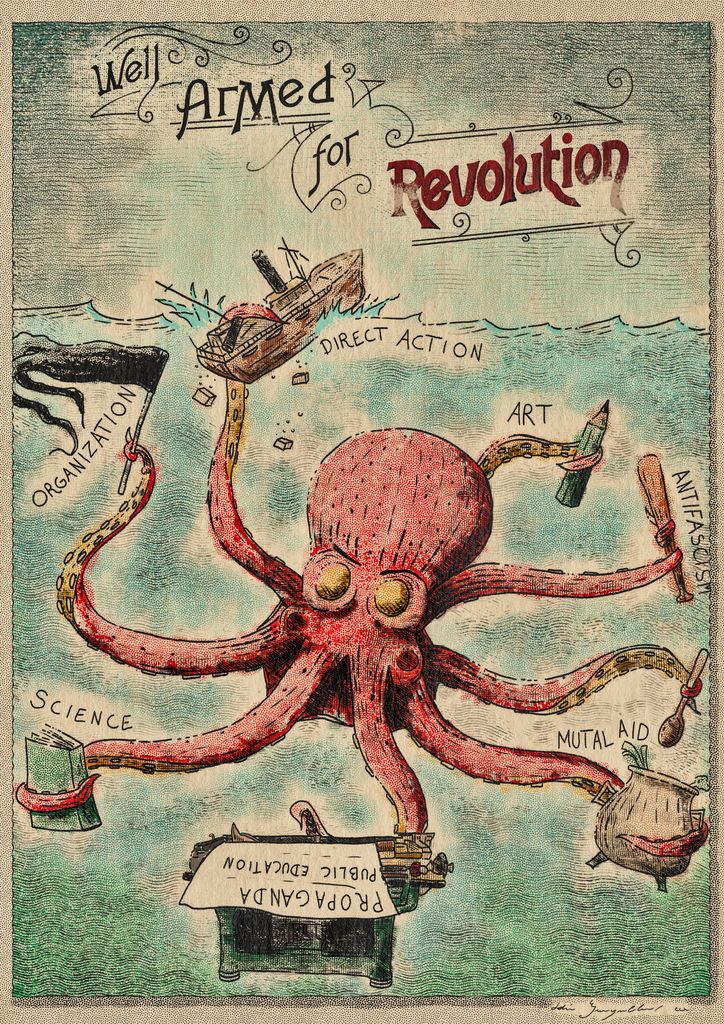 Well
Armed
for
Revolution
DIRECT ACTION
ORGANIZATION
ART
ANTIFASCISM
SCIENCE
MUTAL AID
PROPAGANDA
PUBLIC EDUCATION